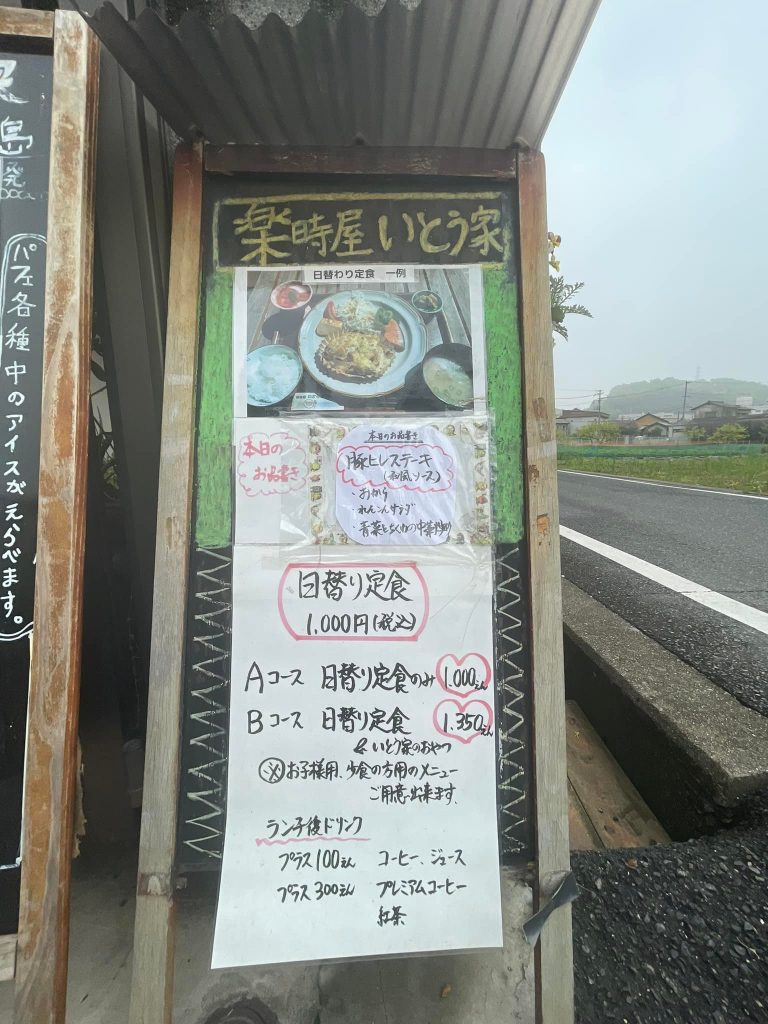 島
発
パフェ各種 中のアイスがえらべます。
楽時屋 いとう家
日替わり定食 一例
本日の
お品書き
本日のお品書き
豚ヒレステーキ
(和風ソース)
・おから
・れんこんサラダ
・青菜と
日替り定食
1,000円(税込)
Aコース 日替り定食のみ 1.000えん
Bコース 日替り定食 1.350えん
& いとう家のおやつ
※お子様用、少食の方用のメニュー
ご用意出来ます。
ランチ後ドリンク
プラス100えん コーヒー、ジュース
プラス300えん プレミアムコーヒー
紅茶